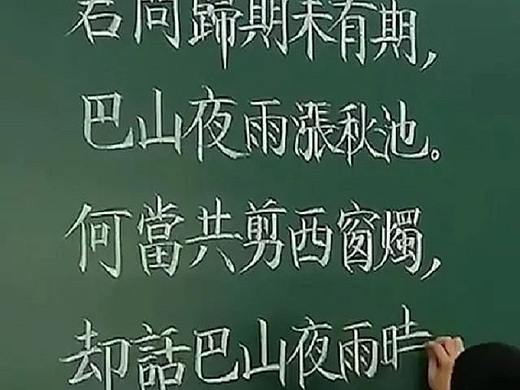 君問歸期未有期,
巴山夜雨漲秋池。
何當共剪西窗燭,
却話巴山夜雨時